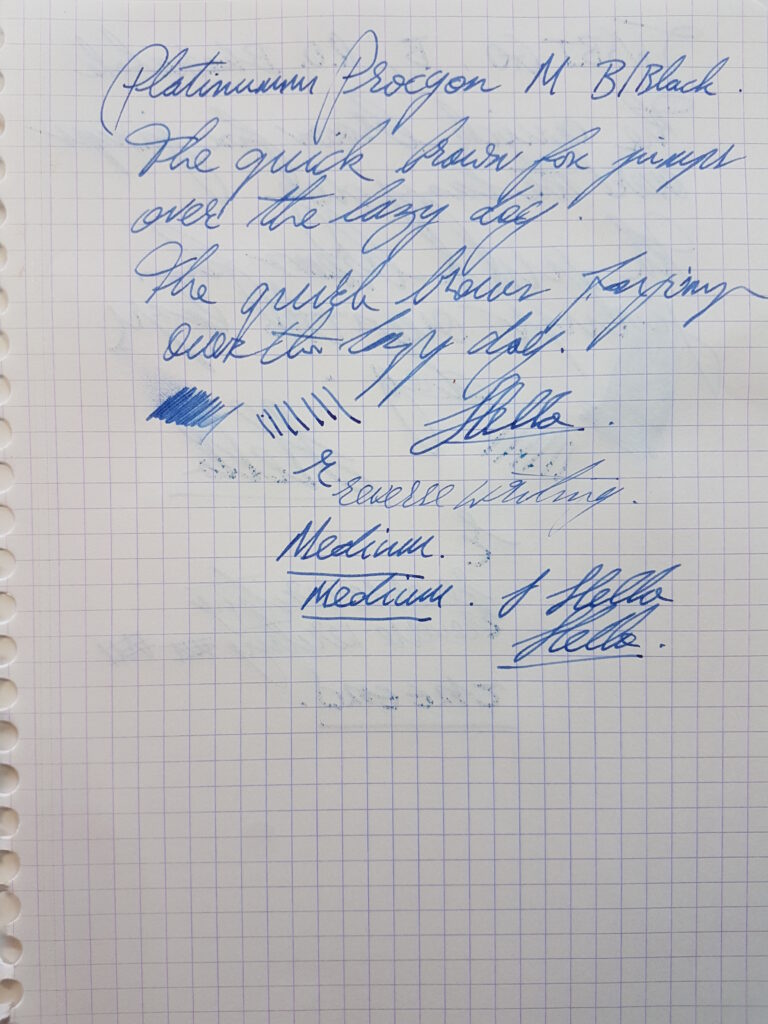 Platinumm Procyon M B/Black.
The quick brown fox jumps
over the lazy dog.
The quick brown
over the lazy dog.
Hello.
r reverse writing.
Medium.
Medium. Hello
Hello.